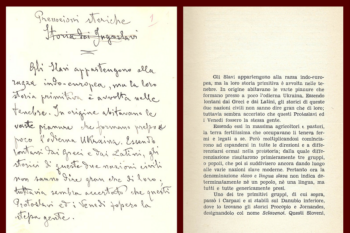 Premessioni storiche
1
Storia dei Jugoslavi
Gli Slavi appartengono alla
razza indo-europea, ma la loro
storia primitiva è avvolta nelle
tenebre. In origine abitavano le
vaste pianure che formano press'a
poco l'odierna Ukraina. Essendo
lontani dai Greci e dai Latini, gli
storici di queste due nazioni civili
non sanno dire gran che di loro;
tuttavia sembra accertato che questi
Protoslavi ed i Venedi fossero la
stessa gente.
Gli Slavi appartengono alla razza indo-euro-
pea, ma la loro storia primitiva è avvolta nelle te-
nebre. In origine abitavano le varie pianure che
formano presso a poco l'odierna Ukraina. Essendo
lontani dai Greci e dai Latini, gli storici di queste
due nazioni civili non sanno dire gran che di loro;
tuttavia sembra accertato che questi Protoslavi ed
i Venedi fossero la stessa gente.
Essendo essi in massima agricoltori e pastori,
la terra fertilissima che occupavano li teneva fer-
mi e legati a sé. Però moltiplicandosi comincia-
rono ad espandersi in tutte le direzioni e a diffe-
renziarsi ormai nella preistoria; dalla quale diffe-
renziazione risultarono primieramente tre gruppi,
e popoli, che poi si suddivisero ancora dando luogo
alle varie nazioni slave moderne. Pertanto ora la
denominazione slavo e lingua slava non indica de-
terminatamente né un popolo, né una lingua, ma
tutti e tutte genericamente presi.
Uno dei tre primitivi gruppi, di cui sopra,
passò i Carpazi e si stabilì sul Danubio inferiore,
dove lo trovano gli storici Procopio e Jornandes,
designandolo col nome Sclavenoi. Questi Sloveni,